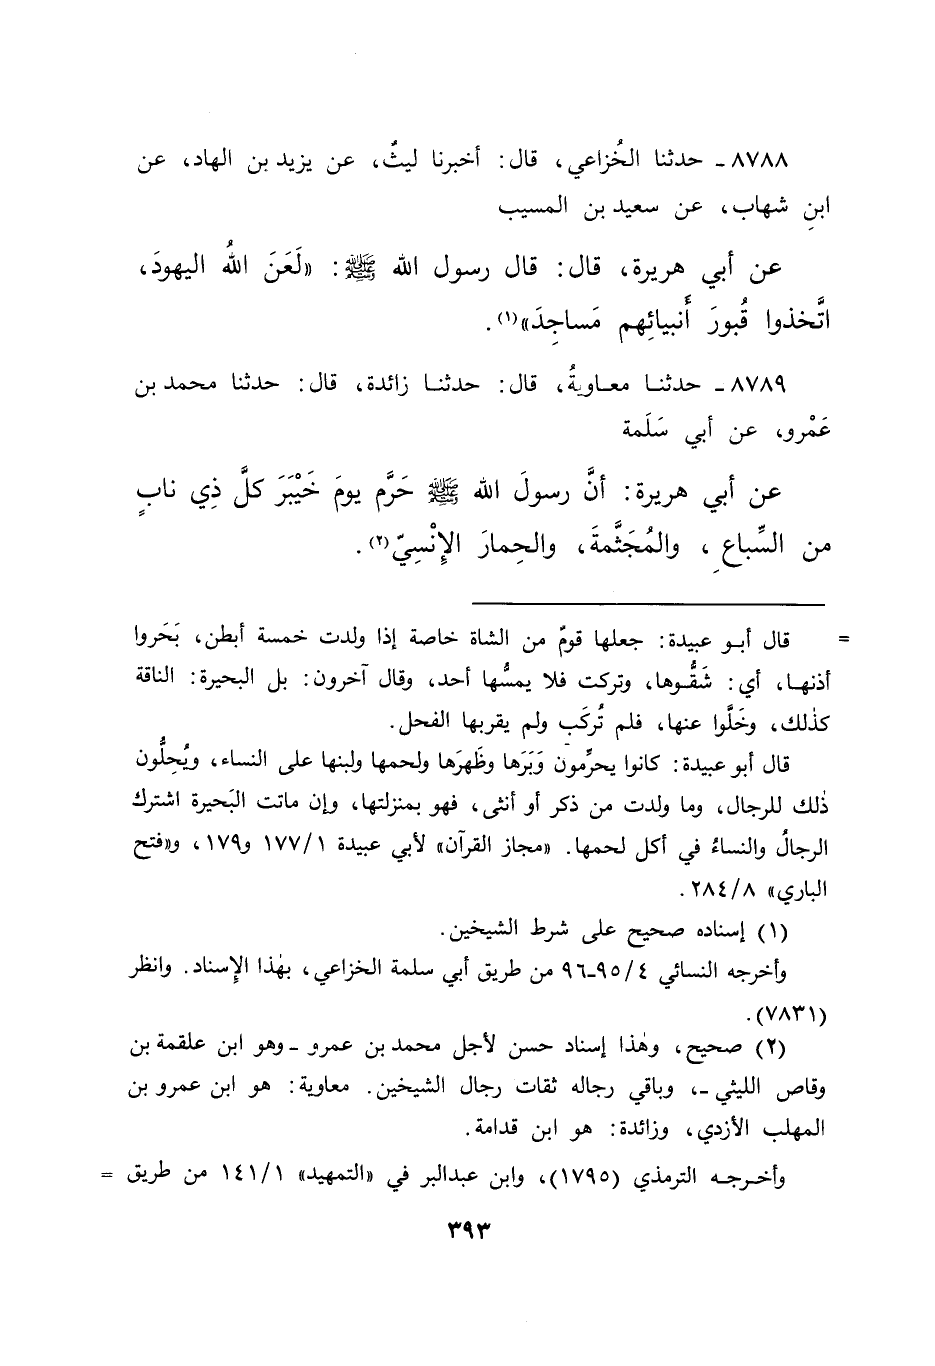 ٨٧٨٨ ـ حدثنا الخُزاعي، قال: أخبرنا ليثٌ، عن يزيد بن الهاد، عن
ابنِ شهاب، عن سعيد بن المسيب
عن أبي هريرة، قال: قال رسول الله ﷺ: «لَعَنَ اللهُ اليهودَ،
اتَّخذوا قُبورَ أَنبيائِهم مَساجِدَ»(١).
٨٧٨٩ ـ حدثنـا معـاويةُ، قال: حدثنـا زائدة، قال: حدثنا محمد بن
عَمْرو، عن أبي سَلَمة
عن أبي هريرة: أنَّ رسولَ الله ﷺ حَرَّم يومَ خَيْبَرَ كلَّ ذِي نابٍ
من السِّباعِ، والمُجَثَّمةَ، والحِمارَ الإِنْسِيّ(٢).
= قال أبـو عبيدة: جعلها قومٌ من الشاة خاصة إذا ولدت خمسة أبطن، بَحَروا
أذنهـا، أي: شَقُّـوها، وتركت فلا يمسُّها أحد، وقال آخرون: بل البحيرة: الناقة
كذٰلك، وخَلَّوا عنها، فلم تُركَب ولم يقربها الفحل.
قال أبو عبيدة: كانوا يحرِّمون وَبَرَها وظَهرَها ولحمها ولبنها على النساء، ويُحِلُّون
ذٰلك للرجال، وما ولدت من ذكر أو أنثى، فهو بمنزلتها، وإن ماتت البَحيرة اشترك
الرجالُ والنساءُ في أكل لحمها. «مجاز القرآن» لأبي عبيدة ١٧٧/١ و١٧٩، و«فتح
الباري» ٢٨٤/٨.
(١) إسناده صحيح على شرط الشيخين.
وأخرجه النسائي ٩٥/٤-٩٦ من طريق أبي سلمة الخزاعي، بهٰذا الإِسناد. وانظر
(٧٨٣١).
(٢) صحيح، وهٰذا إسناد حسن لأجل محمد بن عمرو ـ وهو ابن علقمة بن
وقاص الليثي ـ، وباقي رجاله ثقات رجال الشيخين. معاوية: هو ابن عمرو بن
المهلب الأزدي، وزائدة: هو ابن قدامة.
وأخـرجـه الترمذي (١٧٩٥)، وابن عبدالبر في «التمهيد» ١٤١/١ من طريق =
٣٩٣